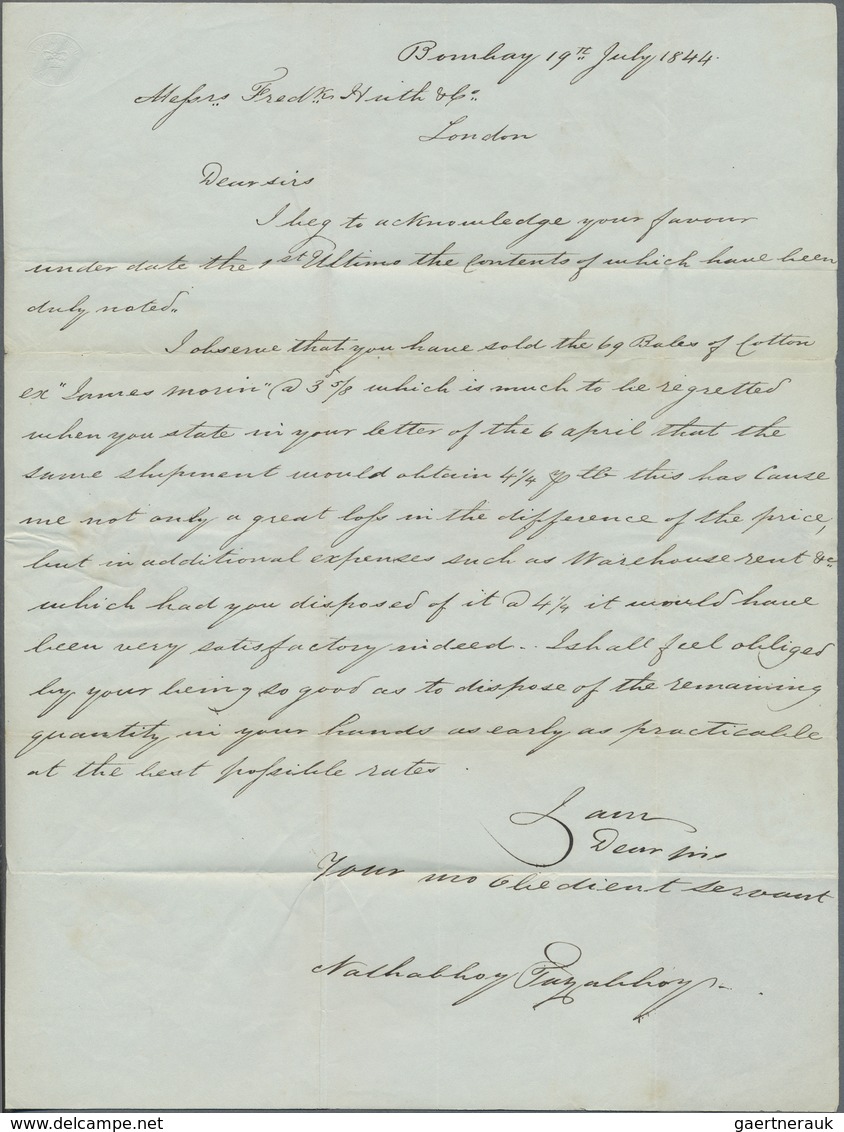 Bombay 19th July 1844
Messrs Fredk Huth & Co.
London
Dear sirs
I beg to acknowledge your favour
under date the 1st Ultimo the Contents of which have been
duly noted.
I observe that you have sold the 69 Bales of Cotton
ex "James morin" @ 3 5/8 which is much to be regretted
when you state in your letter of the 6 april that the
same shipment would obtain 4 1/4 p lb this has Cause
me not only a great loss in the difference of the price,
but in additional expenses such as Warehouse rent &c
which had you disposed of it @ 4 1/4 it would have
been very satisfactory indeed. I shall feel obliged
by your being so good as to dispose of the remaining
quantity in your hands as early as practicable
at the best possible rates
I am
Dear sirs
Your mo Obedient servant
Nathabhoy Fazabhoy
delcampe.net
gaertnerauk